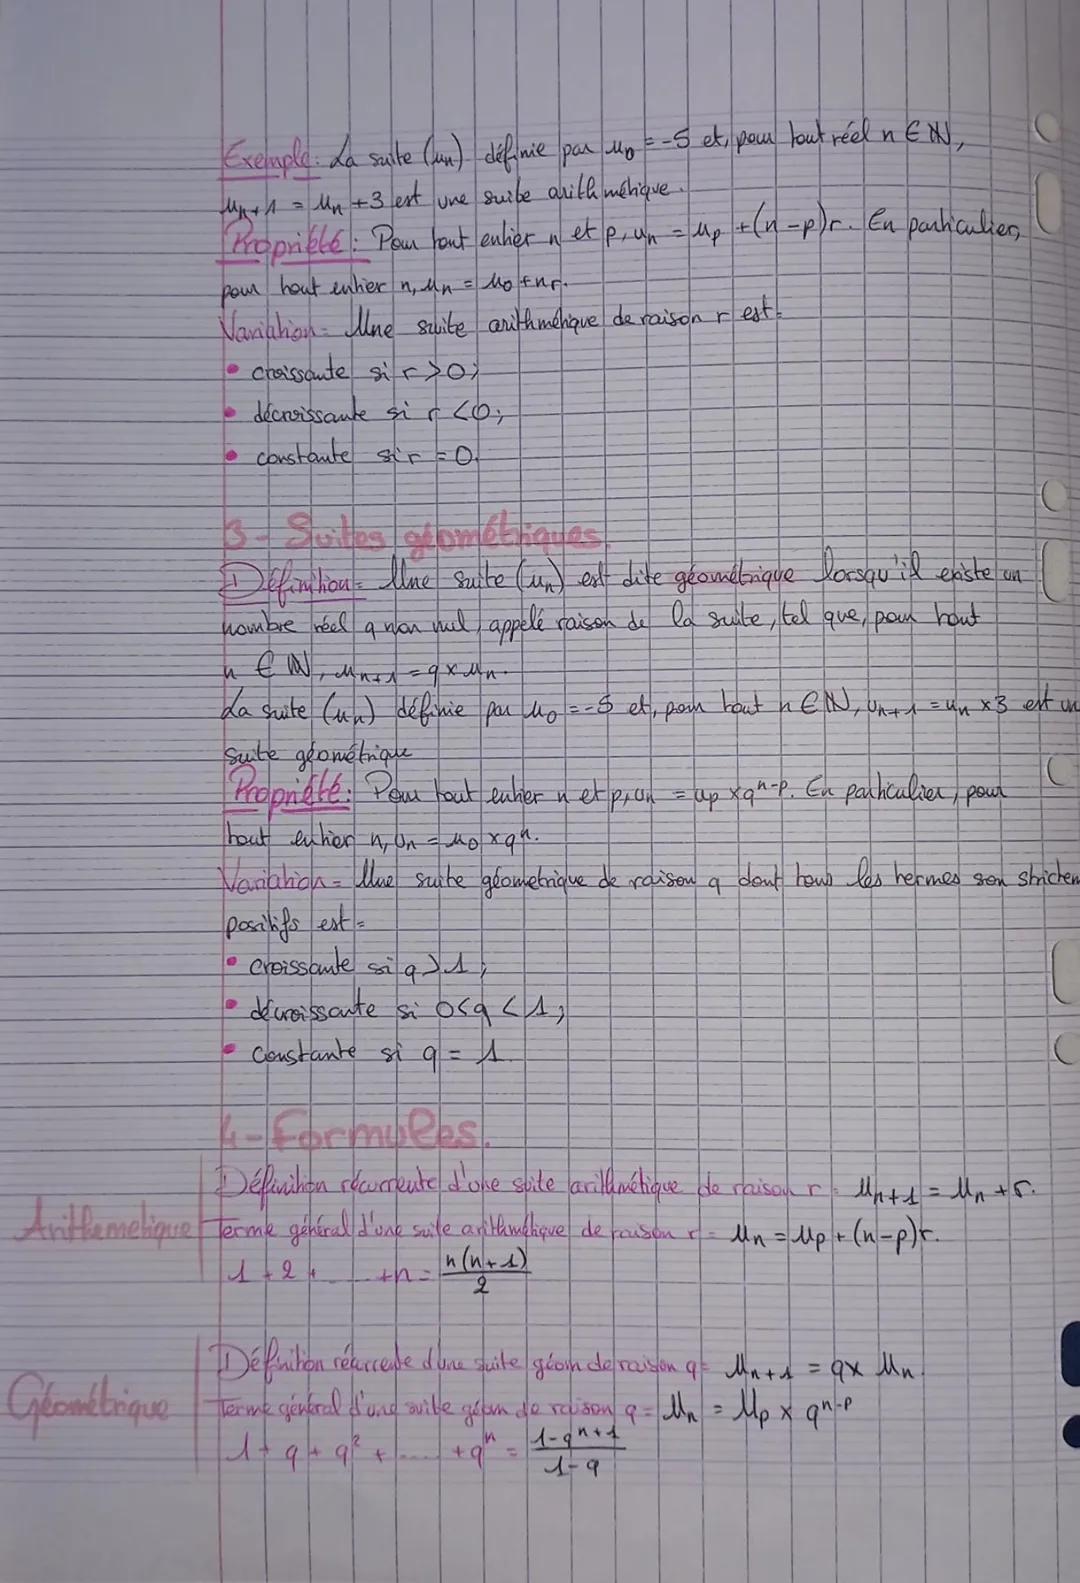 Exemple : La suite (un) définie par u0 = -5 et, pour tout réel n ∈ ℕ,
un+1 = un +3 est une suite arithmétique.
Propriété : Pour tout entier n et p, un = up +(n-p)r. En particulier,
pour tout entier n, un = u0 + nr.
Variation = Une suite arithmétique de raison r est :
• croissante si r >0;
• décroissante si r <0;
• constante si r = 0.
3- Suites géométriques.
Définition = Une suite (un) est dite géométrique lorsqu'il existe un
nombre réel q non nul, appelé raison de la suite, tel que, pour tout
n ∈ ℕ, un+1 = q × un.
La suite (un) définie par u0 = -5 et, pour tout n ∈ ℕ, un+1 = un ×3 est un
suite géométrique
Propriété : Pour tout entier n et p, un = up ×qⁿ⁻ᵖ. En particulier, pour
tout entier n, un = u0 ×qⁿ.
Variation = Une suite géometrique de raison q dont tous les termes son stricten
positifs est =
• croissante si q > 1;
• décroissante si 0<q < 1;
• Constante si q = 1.
4- Formules.
Définition récurrente d'une suite arithmétique de raison r = un+1 = un + r.
Arithemetique Terme général d'une suite arithmétique de raison r = un = up + (n-p)r.
1 + 2 + ...... +n = n(n+1)/2
Définition récurrente d'une suite géom de raison q = un+1 = q× un.
Géométrique Terme général d'une suite géom de raison q = un = up × qⁿ⁻ᵖ
1 + q + q² + ...... + qⁿ = 1-qⁿ⁺¹/1-q